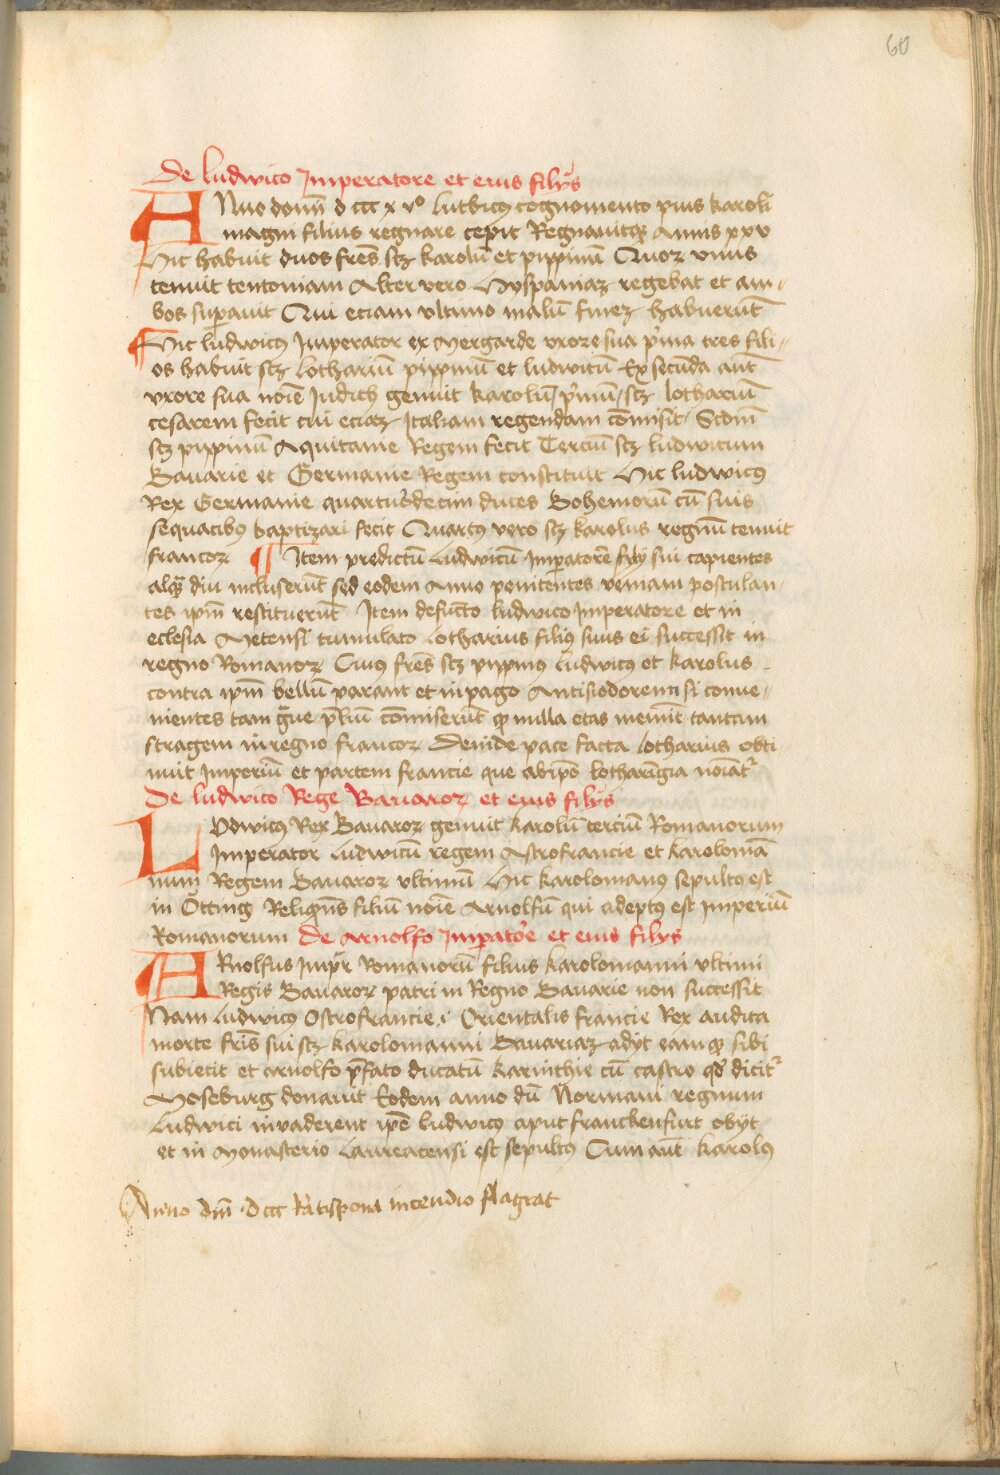 60
De ludwico Imperatore et eius filijs
ANno domĩ d ccc x vᵒ lutbicꝰ cognomento pius karoli
magni filius regnare cepit Regnauitqꝫ Annis xxv
Hic habuit duos fres̃ scꝫ karolũ et pippinũ Quoꝝ vnus
tenuit teutoniam Alter vero Hyspaniaꝫ regebat et am
bos suꝑauit Qui eciam vltimo malũ fineꝫ habuerũt
Hic ludwicꝰ Imperator ex Mergarde vxore sua pͥma tres fili
os habuit scꝫ lothariũ pippinũ et ludwicũ Ex secũda aut̃
vxore sua noĩe Judich genuit karolũ pͥmũ scꝫ lothariũ
cesarem fecit cui eciaꝫ Italiam regendam cõmisit Scdm̃
scꝫ pippinũ Aquitanie Regem fecit Terciũ scꝫ ludwicum
Bauarie et Germanie Regem constituit Hic ludwicꝰ
Rex Germanie quartuordecim duces Bohemorũ cũ suis
sequacibꝰ baptizari fecit Quartꝰ vero scꝫ karolus regnũ tenuit
francoꝝ ¶ Item predictũ Ludwicũ Imꝑatorẽ filij sui capientes
alqᷓ diu incluserũt sed eodem Anno penitentes veniam postulan
tes ipm̃ restituerũt Item defũcto ludwico Imperatore et in
eclesia Metensi tumulato Lotharius filiꝰ suus ei successit in
regno Romanoꝝ Cuiꝰ fres̃ scꝫ pippinꝰ Ludwicꝰ et karolus
contra ipm̃ bellũ parant et in pago Antisiodorenn si conue
nientes tam gͣue p̃liũ cõmiserũt qꝫ nulla etas meminit tantam
stragem in regno francoꝝ Deinde pace facta lotharius obti
nuit Imperiũ et partem francie que ab ip̃o lotharĩgia noĩatʳ
De ludwico Rege Bauaroꝝ et eius filijs
LVdwicꝰ Rex Bauaroꝝ genuit karolũ terciũ Romanorum
Imperator Ludwicũ regem Astrofrancie et karolomã
num Regem Bauaroꝝ vltimũ Hic karolomanꝰ sepultꝰ est
in Otting Reliqñs filiũ noĩe Arnolfũ qui adeptꝰ est Imperiũ
Romanorum De Arnolfo Imꝑatoͬe et eius filijs
ARnolfus Impͬr Romanorũ filius karolomanni vltimi
Regis Bauaroꝝ patri in Regno Bauarie non successit
Nam Ludwicꝰ Ostrofrancie .i. Orientalis francie Rex audita
morte fris̃ sui scꝫ karolomanni Bauariaꝫ adijt eamqꝫ sibi
subiecit et arnolfo p̃fato ducatũ karinthie cũ castro qd̃ dicitʳ
Moseburg donauit Eodem anno dũ Normani regnum
Ludwici inuaderent ip̃e ludwicꝰ aput franckenfurt obijt
et in Monasterio Laureacensi est sepultꝰ Cum aut̃ karolꝰ
Anno dm̃ dccc Ratispona incendio flagrat